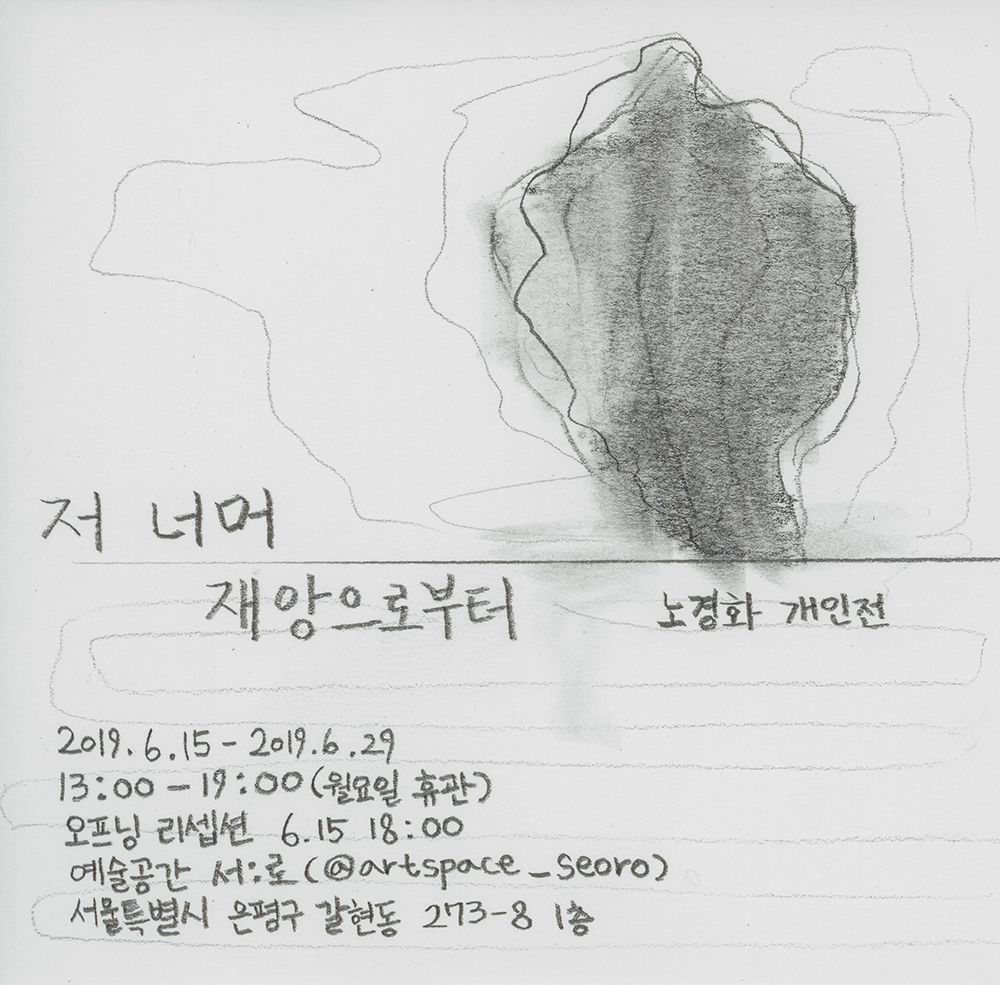 저 너머
재앙으로부터
노경화 개인전
2019.6.15 - 2019.6.29
13:00 - 19:00 (월요일 휴관)
오프닝 리셉션 6.15 18:00
예술공간 서:로 (@artspace_seoro)
서울특별시 은평구 갈현동 273-8 1층